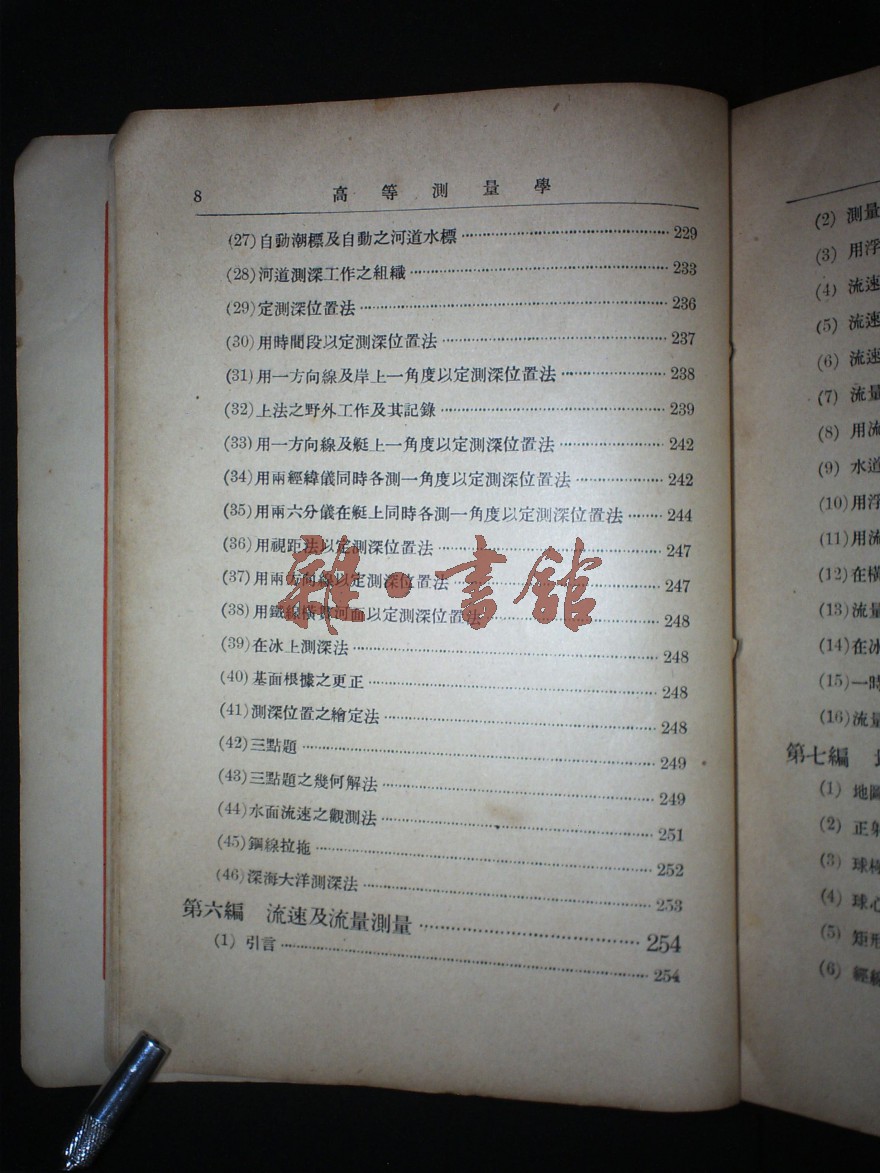 8 高等測量學
(27)自動潮標及自動之河道水標 229
(28)河道測深工作之組織 233
(29)定測深位置法 236
(30)用時間段以定測深位置法 237
(31)用一方向線及岸上一角度以定測深位置法 238
(32)上法之野外工作及其記錄 239
(33)用一方向線及艇上一角度以定測深位置法 242
(34)用兩經緯儀同時各測一角度以定測深位置法 242
(35)用兩六分儀在艇上同時各測一角度以定測深位置法 244
(36)用視距法以定測深位置法 247
(37)用兩方向線以定測深位置法 247
(38)用鐵線橫貫河面以定測深位置法 248
(39)在冰上測深法 248
(40)基面根據之更正 248
(41)測深位置之繪定法 248
(42)三點題 249
(43)三點題之幾何解法 249
(44)水面流速之觀測法 251
(45)鋼線拉拖 252
(46)深海大洋測深法 253
第六編 流速及流量測量 254
(1) 引言 254
雜·書館
(2) 測量
(3) 用浮
(4) 流速
(5) 流速
(6) 流速
(7) 流量
(8) 用流
(9) 水道
(10)用浮
(11)用流
(12)在橫
(13)流量
(14)在冰
(15)一時
(16)流量
第七編
(1) 地圖
(2) 正射
(3) 球極
(4) 球心
(5) 矩形
(6) 經線